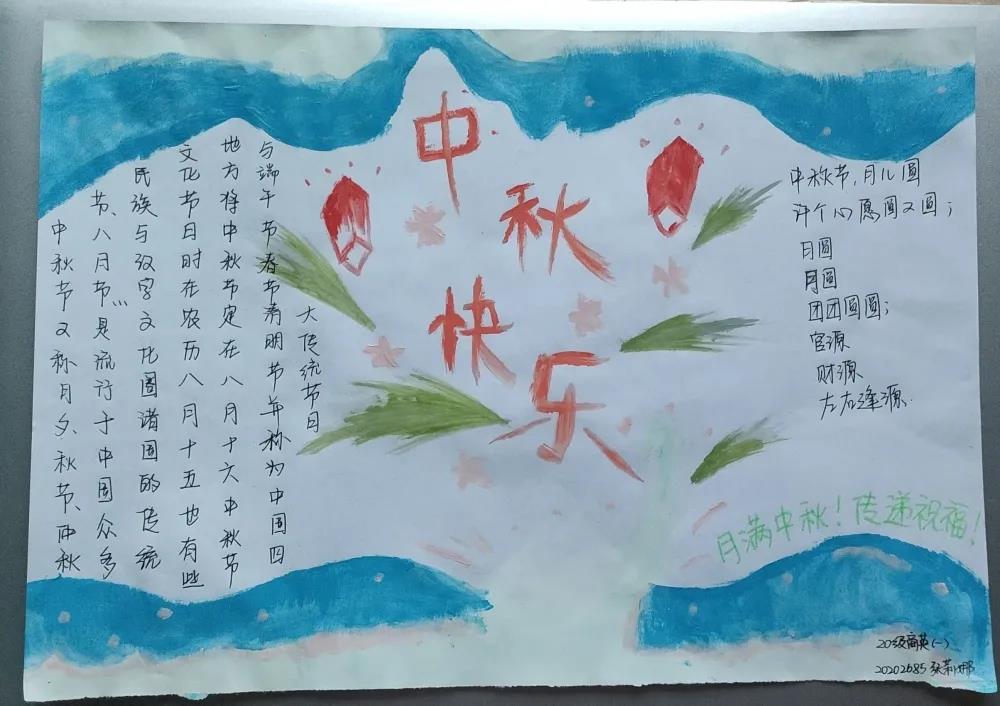 中秋快乐
中秋节又称月夕、秋节、仲秋
节、八月节…是流行于中国众多
民族与汉字文化圈诸国的传统
文化节日时在农历八月十五也有些
地方将中秋节定在八月十六中秋节
与端午节春节清明节并称为中国四
大传统节日
中秋节,月儿圆
许个心愿圆又圆;
日圆
月圆
团团圆圆;
官源
财源
左右逢源.
月满中秋!传递祝福!
20级商英(一)
20202685 张莉娜